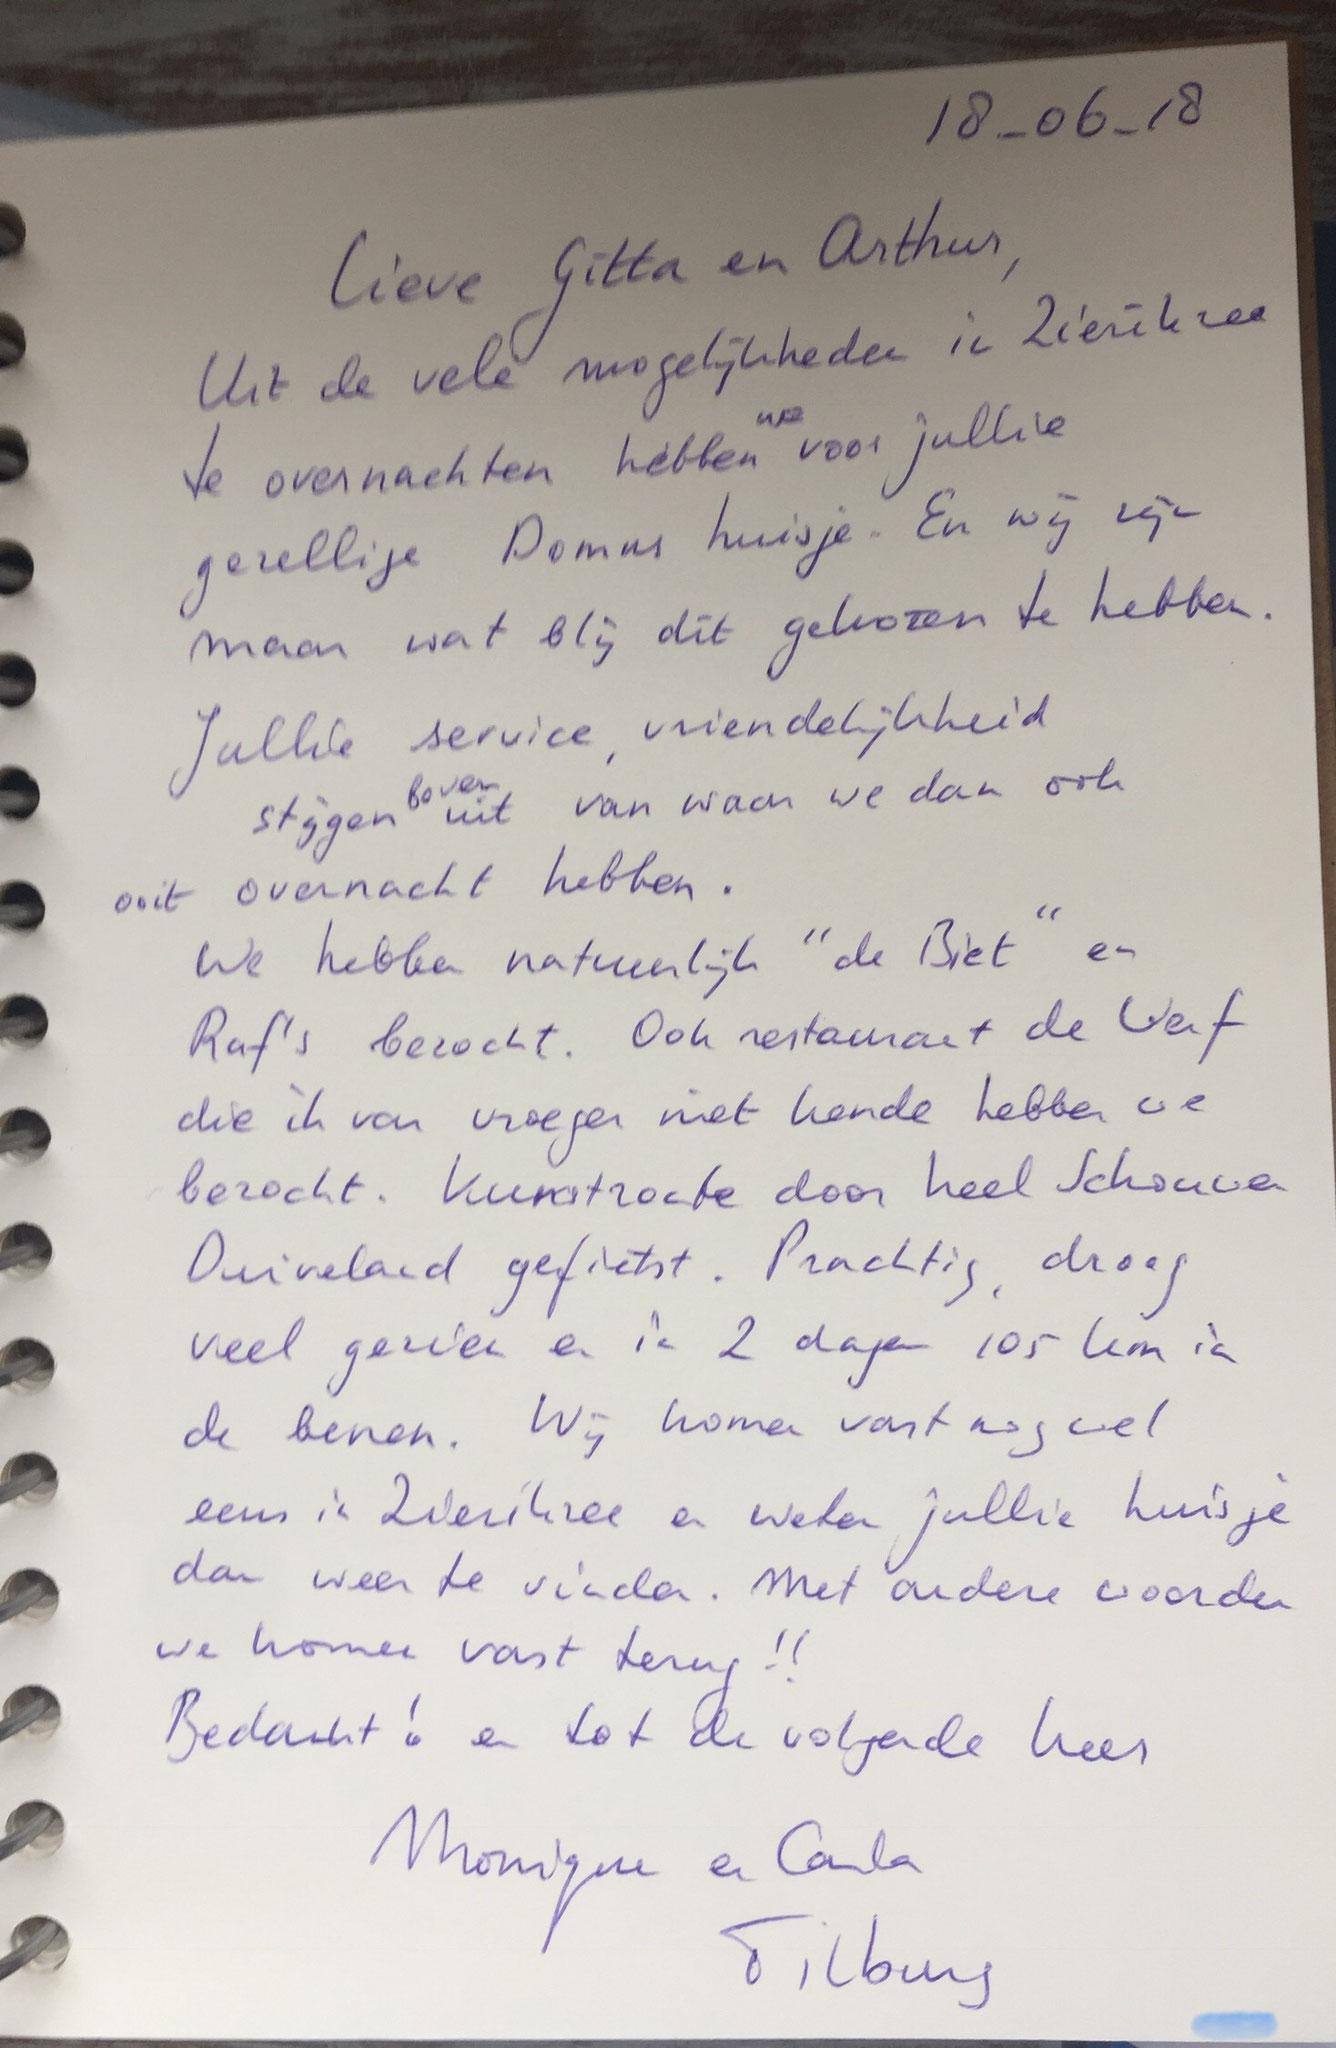 18-06-18
Lieve Gitta en Arthur,
Uit de vele mogelijkheden in Zierikzee
te overnachten hebben we voor jullie
gezellige Domus huisje. En wij zijn
maar wat blij dit gekozen te hebben.
Jullie service, vriendelijkheid
stijgen boven uit van waar we dan ook
ooit overnacht hebben.
We hebben natuurlijk "de Biet" en
Raf's bezocht. Ook restaurant de Werf
die ik van vroeger niet kende hebben we
bezocht. Kunstroute door heel Schouwen
Duiveland gefietst. Prachtig, droog
veel gezien en in 2 dagen 105 km in
de benen. Wij komen vast nog wel
eens in Zierikzee en weten jullie huisje
dan weer te vinden. Met andere woorden
we komen vast terug!!
Bedankt! en tot de volgende keer
Monique en Carla
Tilburg